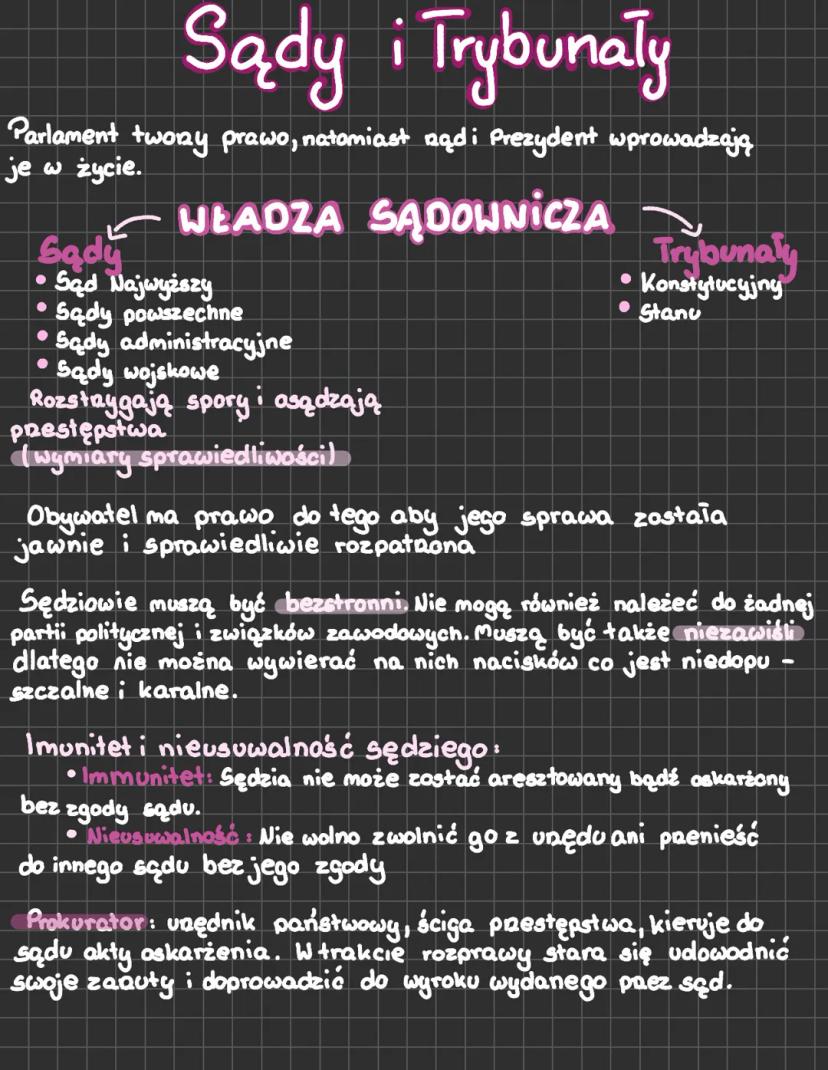 Sądy i Trybunały
Parlament tworzy prawo, natomiast rząd i Prezydent wprowadzają
je w życie.
WŁADZA SĄDOWNICZA
Sądy
• Sąd Najwyższy
• Sądy powszechne
• Sądy administracyjne
• Sądy wojskowe
Rozstrzygają spory i osądzają
przestępstwa
(wymiary sprawiedliwości)
Trybunały
• Konstytucyjny
• Stanu
Obywatel ma prawo do tego aby jego sprawa została
jawnie i sprawiedliwie rozpatrzona
Sędziowie muszą być bezstronni. Nie mogą również należeć do żadnej
partii politycznej i związków zawodowych. Muszą być także niezawiśli
dlatego nie można wywierać na nich nacisków co jest niedopu -
szczalne i karalne.
Imunitet i nieusuwalność sędziego:
• Immunitet: Sędzia nie może zostać aresztowany bądź oskarżony
bez zgody sądu.
• Nieusuwalność: Nie wolno zwolnić go z urzędu ani przenieść
do innego sądu bez jego zgody
Prokurator: urzędnik państwowy, ściga przestępstwa, kieruje do
sądu akty oskarżenia. W trakcie rozprawy stara się udowodnić
swoje zarzuty i doprowadzić do wyroku wydanego przez sąd.